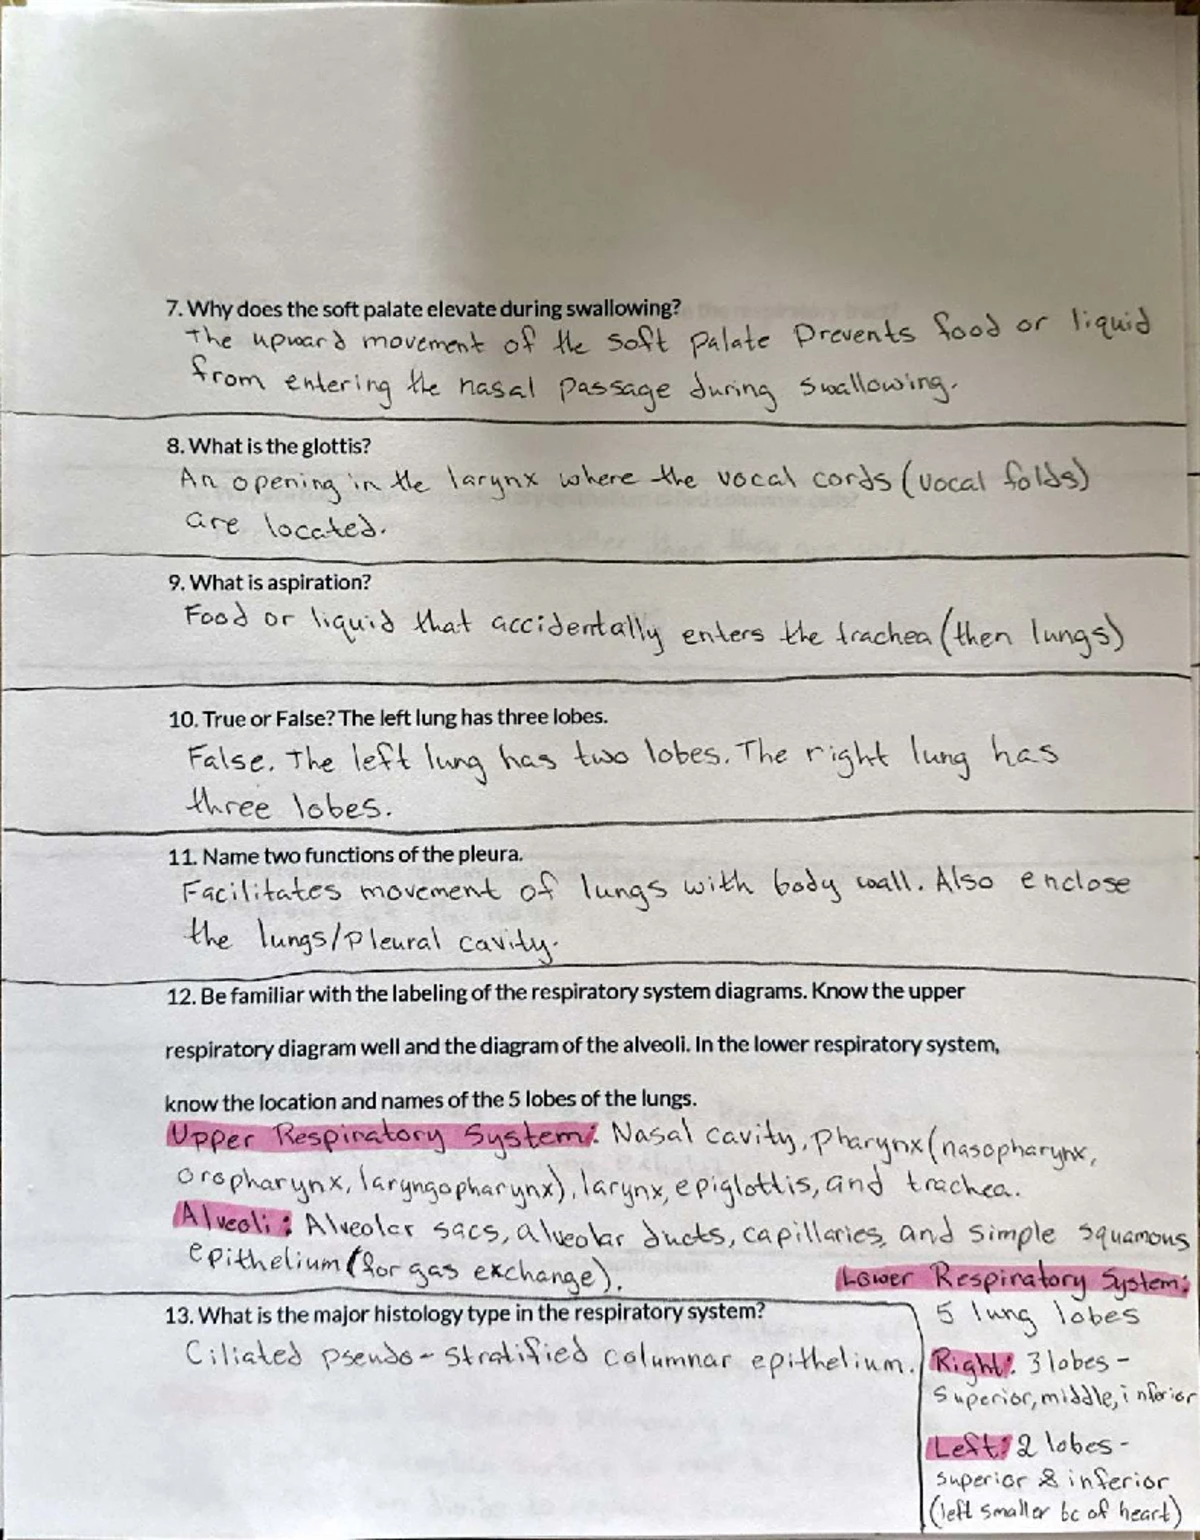 7. Why does the soft palate elevate during swallowing?
The upward movement of the soft palate prevents food or liquid
from entering the nasal passage during swallowing.
8. What is the glottis?
An opening in the larynx where the vocal cords (vocal folds)
are located.
9. What is aspiration?
Food or liquid that accidentally enters the trachea (then lungs)
10. True or False? The left lung has three lobes.
False. The left lung has two lobes. The right lung has
three lobes.
11. Name two functions of the pleura.
Facilitates movement of lungs with body wall. Also enclose
the lungs/pleural cavity.
12. Be familiar with the labeling of the respiratory system diagrams. Know the upper
respiratory diagram well and the diagram of the alveoli. In the lower respiratory system,
know the location and names of the 5 lobes of the lungs.
Upper Respiratory System: Nasal cavity, pharynx (nasopharynx,
oropharynx, laryngopharynx), larynx, epiglottis, and trachea.
Alveoli: Alveolar sacs, alveolar ducts, capillaries, and simple squamous
epithelium (for gas exchange).
13. What is the major histology type in the respiratory system?
Ciliated pseudo-stratified columnar epithelium.
Lower Respiratory System:
5 lung lobes
Right: 3 lobes -
superior, middle, inferior
Left: 2 lobes -
superior & inferior
(left smaller bc of heart)